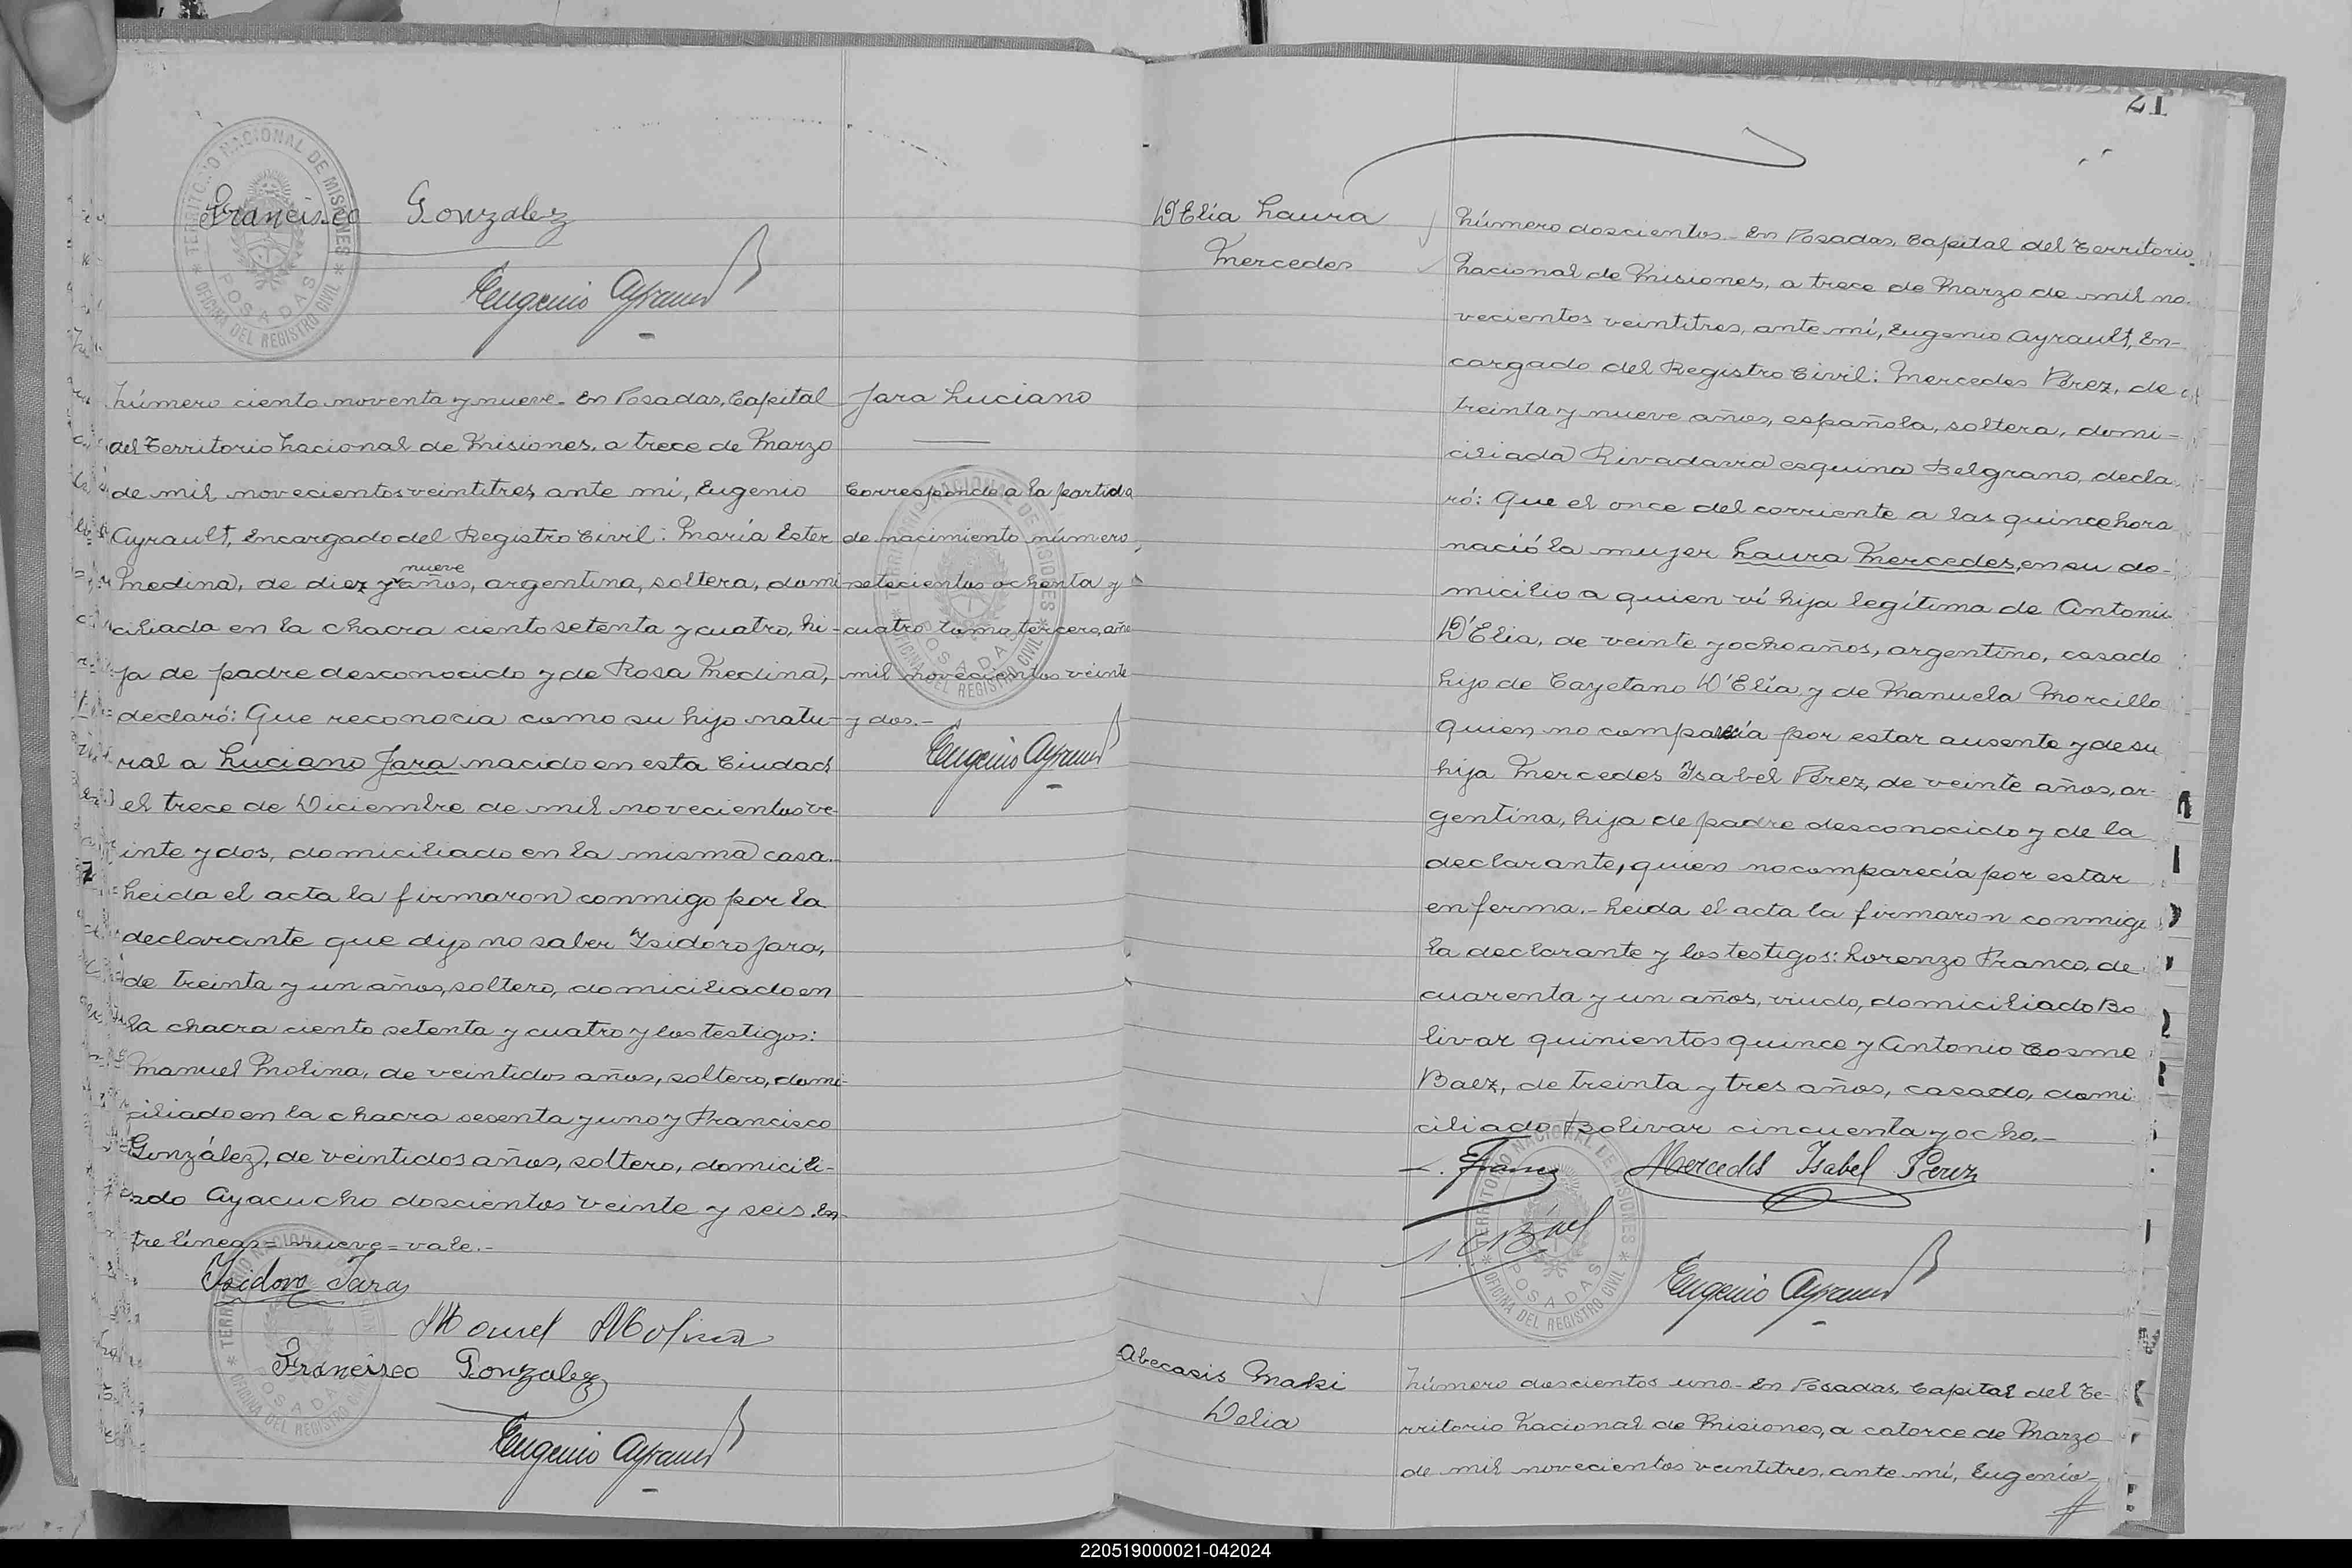 Francisco Gonzalez
Eugenio Ayrault
TERRITORIO NACIONAL DE MISIONES
POSADAS
OFICINA DEL REGISTRO CIVIL
Número ciento noventa y nueve. En Posadas, Capital
del Territorio Nacional de Misiones, a trece de Marzo
de mil novecientos veintitres, ante mí, Eugenio
Ayrault, Encargado del Registro Civil: María Ester
nueve
Medina, de diez y años, argentina, soltera, domi-
ciliada en la chacra ciento setenta y cuatro, hi-
ja de padre desconocido y de Rosa Medina,
declaró: Que reconocia como su hijo natu-
ral a Luciano Jara nacido en esta Ciudad
el trece de Diciembre de mil novecientos ve-
inte y dos, domiciliado en la misma casa.
Leida el acta la firmaron conmigo por la
declarante que dijo no saber Isidoro Jara,
de treinta y un años, soltero, domiciliado en
la chacra ciento setenta y cuatro y los testigos:
Manuel Molina, de veintidos años, soltero, domi-
ciliado en la chacra sesenta y uno y Francisco
González, de veintidos años, soltero, domicili-
ado Ayacucho doscientos veinte y seis. En-
tre líneas = nueve = vale.-
Isidoro Jara
Manuel Molina
Francisco Gonzalez
Eugenio Ayrault
TERRITORIO NACIONAL DE MISIONES
POSADAS
OFICINA DEL REGISTRO CIVIL
Jara Luciano
Corresponde a la partida
de nacimiento número
setecientos ochenta y
cuatro tomo tercero, año
mil novecientos veinte
y dos.-
Eugenio Ayrault
TERRITORIO NACIONAL DE MISIONES
POSADAS
OFICINA DEL REGISTRO CIVIL
21
D'Elía Laura
Mercedes
Número doscientos. En Posadas, Capital del Territorio
Nacional de Misiones, a trece de Marzo de mil no-
vecientos veintitres, ante mí, Eugenio Ayrault, En-
cargado del Registro Civil: Mercedes Pérez, de
treinta y nueve años, española, soltera, domi-
ciliada Rivadavia esquina Belgrano, decla-
ró: Que el once del corriente a las quince hora
nació la mujer Laura Mercedes, en su do-
micilio a quien ví hija legítima de Antonio
D'Elia, de veinte y ocho años, argentino, casado
hijo de Cayetano D'Elía y de Manuela Morcillo
quien no comparecía por estar ausente y de su
hija Mercedes Isabel Pérez, de veinte años, ar-
gentina, hija de padre desconocido y de la
declarante, quien no comparecía por estar
enferma.- Leida el acta la firmaron conmigo
la declarante y los testigos: Lorenzo Franco, de
cuarenta y un años, viudo, domiciliado Bo
livar quinientos quince y Antonio Cosme
Baez, de treinta y tres años, casado, domi
ciliado Bolivar cincuenta y ocho.-
L. Franco Mercedes Isabel Perez
Eugenio Ayrault
TERRITORIO NACIONAL DE MISIONES
POSADAS
OFICINA DEL REGISTRO CIVIL
Abecasis Maki
Delia
Número doscientos uno- En Posadas, Capital del Te-
rritorio Nacional de Misiones, a catorce de Marzo
de mil novecientos veintitres, ante mí, Eugenio
220519000021-042024